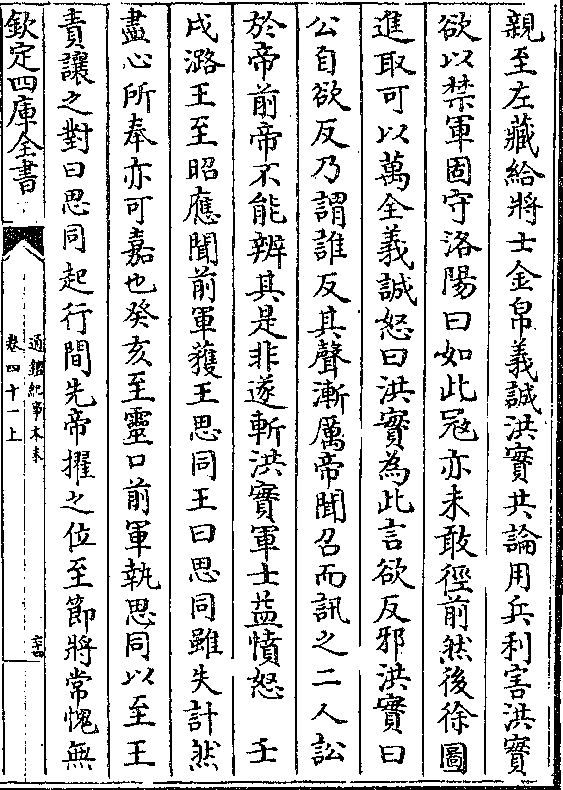 親至左藏給將士金帛義誠洪實共論用兵利害洪實
欲以禁軍固守洛陽曰如此冦亦未敢徑前然後徐圖
進取可以萬全義誠怒曰洪實為此言欲反邪洪實曰
公自欲反乃謂誰反其聲漸厲帝聞召而訊之二人訟
於帝前帝不能辨其是非遂斬洪實軍士益憤怒 壬
戌潞王至昭應聞前軍獲王思同王曰思同雖失計然
盡心所奉亦可嘉也癸亥至靈口前軍執思同以至王
責讓之對曰思同起行間先帝擢之位至節將常愧無
欽定四庫全書
通鑑紀事本末
卷四十一上